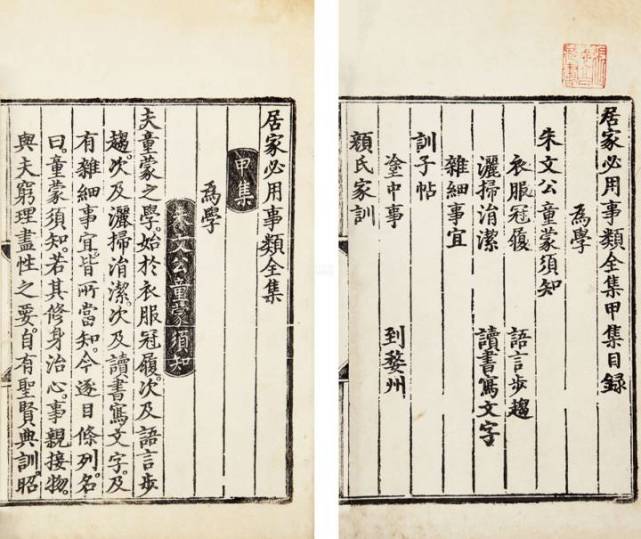 居家必用事類全集甲集目錄
為學
朱文公童蒙須知
衣服冠履 語言步趨
灑掃涓潔 讀書寫文字
雜細事宜
訓子帖
塗中事 到婺州
顏氏家訓
居家必用事類全集
甲集
為學
朱文公童蒙須知
夫童蒙之學。始於衣服冠履。次及語言步
趨。次及灑掃涓潔。次及讀書寫文字。及
有雜細事宜。皆所當知。今逐目條列。名
曰。童蒙須知。若其修身治心。事親接物。
與夫窮理盡性之要。自有聖賢典訓。昭